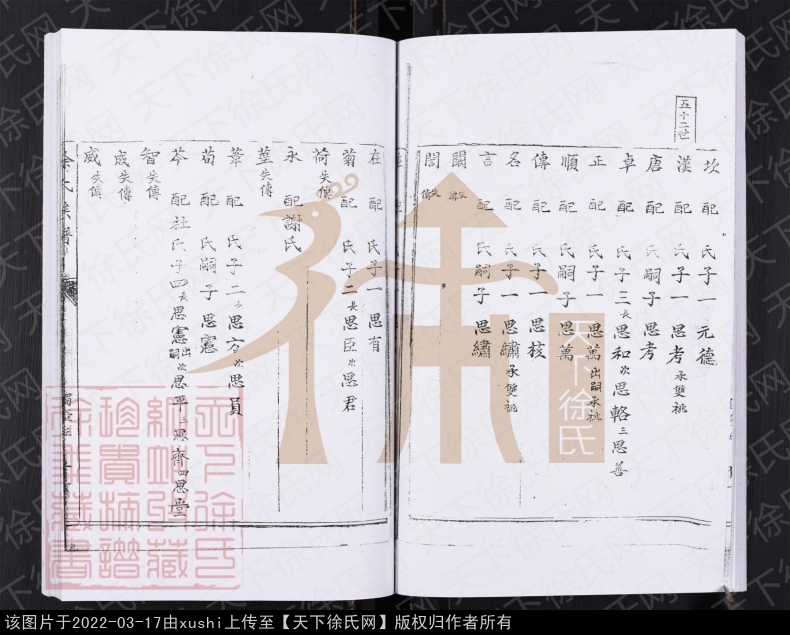 五十二世
坎 配 氏子一 元德
漢 配 氏子一 思考 承雙祧
唐 配 氏嗣子 思考
卓 配 氏子三 長思和 次思輅 三思善
正 配 氏子一 思萬 出嗣承祧
順 配 氏嗣子 思萬
傳 配 氏子一 思棪
名 配 氏子一 思繡 承雙祧
言 配 氏嗣子 思繡
關 失傳
誾 失傳
在 配 氏子一 思有
菊 配 氏子二 長思臣 次思君
荷 失傳
永 配謝氏
莖 失傳
葦 配 氏子二 長思方 次思員
荀 配 氏嗣子 思憲
芩 配杜氏子四 長思憲出嗣 次思平 三思齊 四思堂
智 失傳
成 失傳
威 失傳
徐氏族譜
天下徐氏
天下徐氏网
该图片于2022-03-17由xushi上传至【天下徐氏网】版权归作者所有